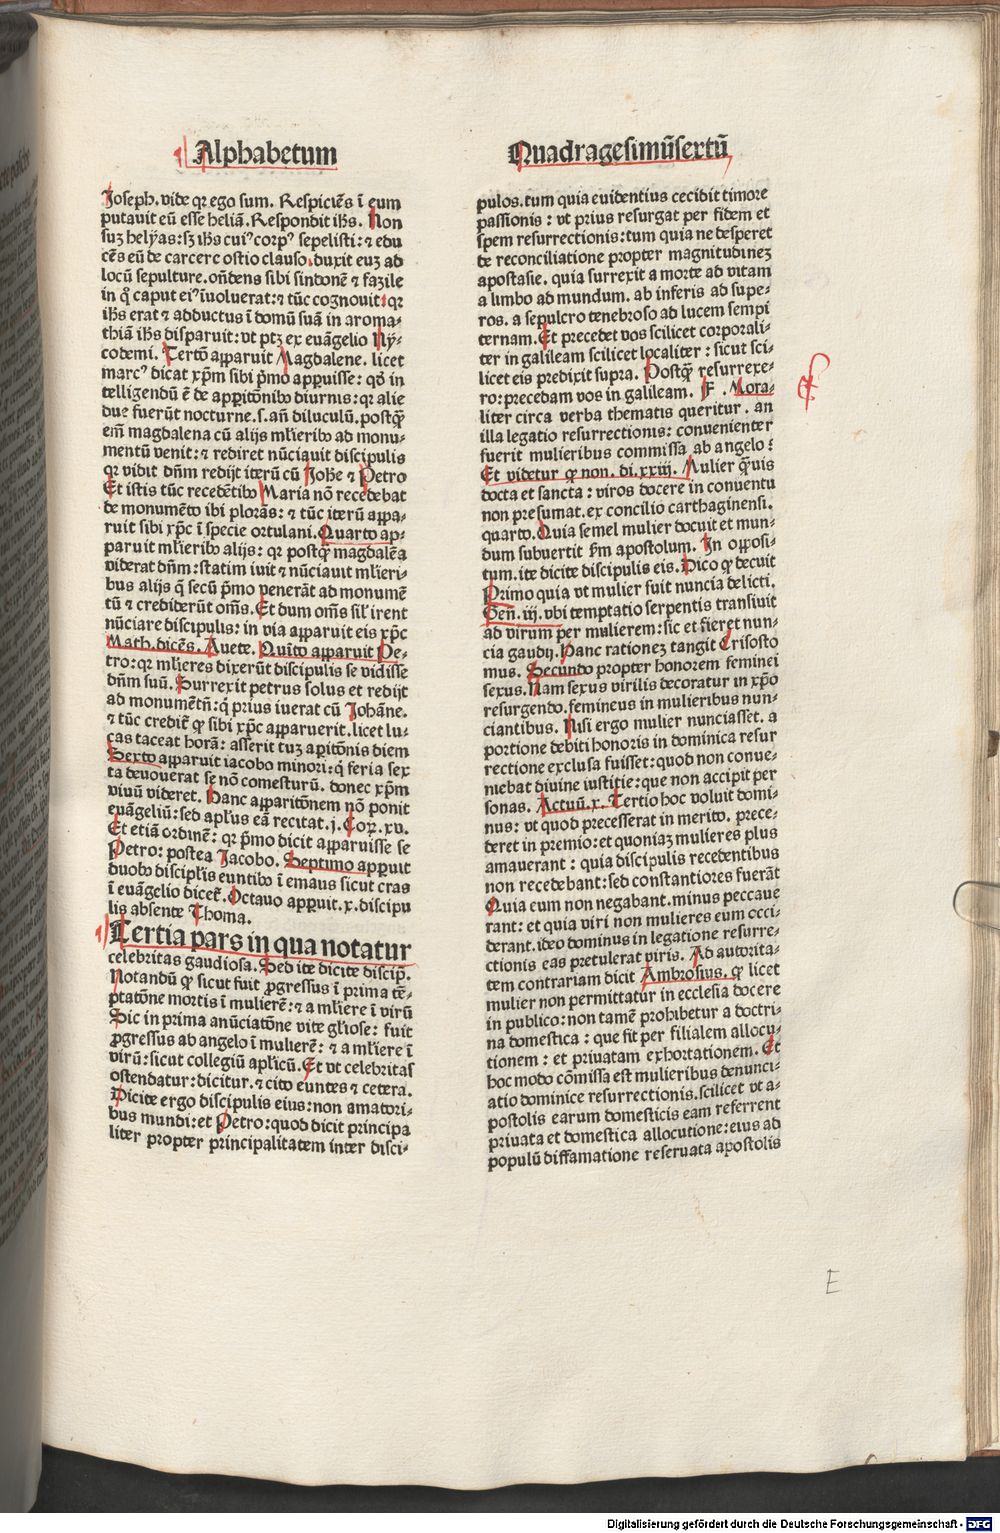 Alphabetum
Joseph. vide qr ego sum. Respiciēs ī eum
putavit eū esse heliā. Respondit ihs. Non
suꝫ helÿas: sꝫ ihs cuiꝰ corpꝰ sepelisti: ⁊ edu
cēs eū de carcere ostio clauso. duxit euꝫ ad
locū sepulture. oñdens sibi sindonē ⁊ faꝫile
in q̄ caput eiꝰ īuoluerat: ⁊ tūc cognouit: qr
ihs erat ⁊ adductus ī domū suā in aroma-
thiā ihs disparuit: vt ptꝫ ex euāgelio Ny-
codemi. Tertō apparuit Magdalene. licet
marcꝰ dicat xpm̄ sibi p̄mo appuisse: qđ in
telligendū ē de appitōnibꝰ diurnis: qr alie
due fuerūt nocturne. s. añ diluculū. postqꝫ
em̄ magdalena cū alijs ml̄ieribꝰ ad monu-
mentū venit: ⁊ rediret nūciauit discipulis
qr vidit dñm redijt iterū cū Johē ⁊ Petro
Et istis tūc recedētibꝰ Maria nō recedebat
de monumēto ibi plorās: ⁊ tūc iterū appa-
ruit sibi xp̄c ī specie ortulani. Quarto ap-
paruit ml̄ieribꝰ alijs: qr postqꝫ magdalēa
viderat dñm: statim iuit ⁊ nūciauit ml̄ieri-
bus alijs q̄ secū p̄mo venerāt ad monumē
tū ⁊ crediderūt om̄s. Et dum om̄s sil̄ irent
nūciare discipulis: in via apparuit eis xp̄c
Math. dicēs. Auete. Quīto apparuit Pe-
tro: qr ml̄ieres dixerūt discipulis se vidisse
dñm suū. Surrexit petrus solus et redijt
ad monumētū: q̄ prius iuerat cū Johāne.
⁊ tūc credit̄ qꝫ sibi xp̄c apparuerit. licet lu-
cas taceat horā: asserit tuꝫ apitōnis diem
Sexto apparuit iacobo minori: q̄ feria sex
ta deuouerat se nō comesturū. donec xpm̄
viuū videret. Hanc apparitōnem nō ponit
euāgeliū: sed apl̄us eā recitat. j. Coꝝ. xv.
Et etiā ordinē: qr p̄mo dicit apparuisse se
Petro: postea Jacobo. Septimo appuit
duobꝰ discipl̄is euntibꝰ ī emaus sicut cras
ī euāgelio dicet̄. Octauo appuit. x. discipu
lis absente Thoma.
Tertia pars in qua notatur
celebritas gaudiosa. Sed ite dicite discip̄.
Notandū qꝫ sicut fuit ꝓgressus ī prima tē-
ptatōne mortis ī mulierē: ⁊ a ml̄iere ī virū
Sic in prima anūciatōne vite gl̄iose: fuit
ꝓgressus ab angelo ī mulierē: ⁊ a ml̄iere ī
virū: sicut collegiū apl̄icū. Et vt celebritas
ostendatur: dicitur. ⁊ cito euntes ⁊ cetera.
Dicite ergo discipulis eius: non amatori-
bus mundi: et Petro: quod dicit principa
liter propter principalitatem inter disci-
Quadragesimūsextū
pulos. tum quia euidentius cecidit timore
passionis: vt prius resurgat per fidem et
spem resurrectionis: tum quia ne desperet
de reconciliatione propter magnitudineꝫ
apostasie. quia surrexit a morte ad vitam
a limbo ad mundum. ab inferis ad supe-
ros. a sepulcro tenebroso ad lucem sempi
ternam. Et precedet vos scilicet corporali-
ter in galileam scilicet localiter: sicut sci-
licet eis predixit supra. Postqꝫ resurrexe-
ro: precedam vos in galileam. F. Mora-
liter circa verba thematis queritur. an
illa legatio resurrectionis: conuenienter
fuerit mulieribus commissa ab angelo:
Et videtur qꝫ non. di. xxiij. Mulier qꝫuis
docta et sancta: viros docere in conuentu
non presumat. ex concilio carthaginensi.
quarto. Quia semel mulier docuit et mun-
dum subuertit s̄m apostolum. In opposi-
tum. ite dicite discipulis eis. Dico qꝫ decuit
Primo quia vt mulier fuit nuncia delicti.
Geñ. iij. vbi temptatio serpentis transiuit
ad virum per mulierem: sic et fieret nun-
cia gaudij. Hanc rationeꝫ tangit Crisosto
mus. Secundo propter honorem feminei
sexus. Nam sexus virilis decoratur in xp̄o
resurgendo. femineus in mulieribus nun-
ciantibus. Nisi ergo mulier nunciasset. a
portione debiti honoris in dominica resur
rectione exclusa fuisset: quod non conue-
niebat diuine iustitie: que non accipit per
sonas. Actuū. x. Tertio hoc voluit domi-
nus: vt quod precesserat in merito. prece-
deret in premio: et quoniaꝫ mulieres plus
amauerant: quia discipulis recedentibus
non recedebant: sed constantiores fuerāt
Quia eum non negabant. minus peccaue
rant: et quia viri non mulieres eum occi-
derant. ideo dominus in legatione resurre-
ctionis eas pretulerat viris. Ad autorita-
tem contrariam dicit Ambrosius. qꝫ licet
mulier non permittatur in ecclesia docere
in publico: non tamē prohibetur a doctri-
na domestica: que fit per filialem allocu-
tionem: et priuatam exhortationem. Et
hoc modo cōmissa est mulieribus denunci-
atio dominice resurrectionis. scilicet vt a-
postolis earum domesticis eam referrent
priuata et domestica allocutione: eius ad
populū diffamatione reseruata apostolis
E
Digitalisierung gefördert durch die Deutsche Forschungsgemeinschaft - DFG